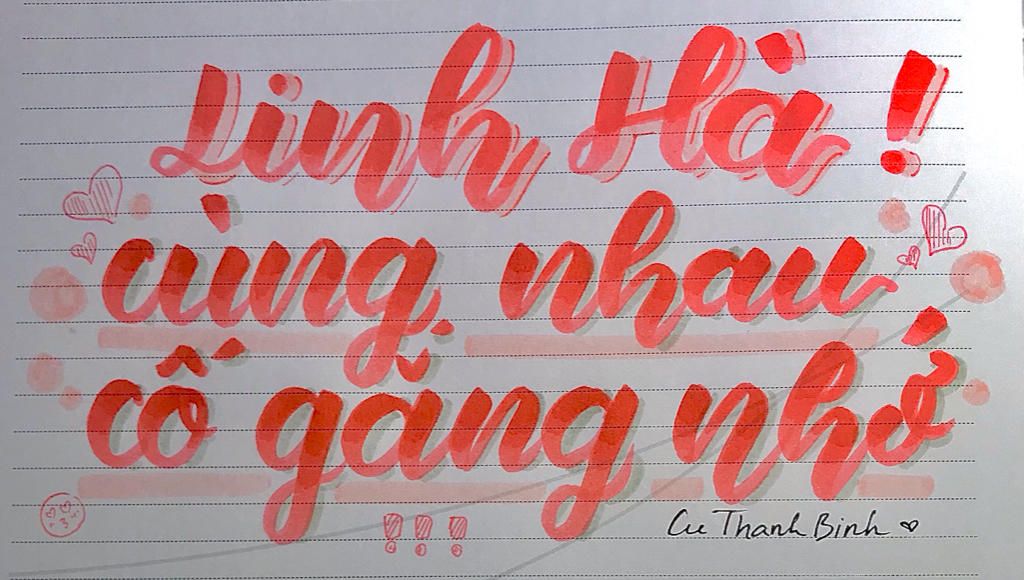 Linh Hà !
cùng nhau
cố gắng nhớ
!!!
Cu Thanh Binh